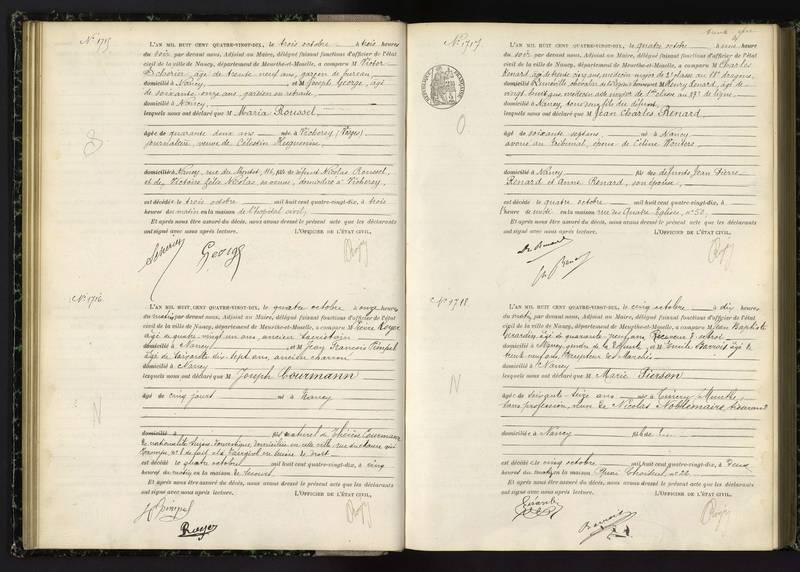 N° 1715
L'AN MIL HUIT CENT QUATRE-VINGT-DIX, le trois octobre à trois heures
du soir par devant nous, Adjoint au Maire, délégué faisant fonctions d'officier de l'état
civil de la ville de Nancy, département de Meurthe-et-Moselle, a comparu M Victor
âgé de trente neuf ans, garçon de bureau
domicilié à Nancy et M Joseph George, âgé
de soixante onze ans, gardien en retraite
domicilié à Nancy
lesquels nous ont déclaré que M Maria Roussel
âgée de quarante deux ans née à Vicherey (Vosges)
journalière, veuve de Célestin Huguenin
domiciliée à Nancy, rue du 116, fille de défunt Nicolas Roussel
et de Victoire Félix Nicolas sa veuve, domiciliée à Vicherey
est décédée le trois octobre mil huit cent quatre-vingt-dix, à trois
heures du matin en la maison de l'hôpital civil,
Et après nous être assuré du décès, nous avons dressé le présent acte que les déclarants
ont signé avec nous après lecture. L'OFFICIER DE L'ÉTAT CIVIL,
George
N° 1716
L'AN MIL HUIT CENT QUATRE-VINGT-DIX, le quatre octobre à onze heures
du matin par devant nous, Adjoint au Maire, délégué faisant fonctions d'officier de l'état
civil de la ville de Nancy, département de Meurthe-et-Moselle, a comparu M Pierre Royer
âgé de quatre vingt un ans, ancien sacristain
domicilié à Nancy et M Jean François Pimpel
âgé de soixante dix sept ans, ancien charron
domicilié à Nancy
lesquels nous ont déclaré que M Joseph Courmann
âgé de cinq jours né à Nancy
domicilié à fils naturel de Thérèse Courmann
de nationalité domestique, domiciliée en cette ville
est décédé le quatre octobre mil huit cent quatre-vingt-dix, à cinq
heures du matin en la maison de secours
Et après nous être assuré du décès, nous avons dressé le présent acte que les déclarants
ont signé avec nous après lecture. L'OFFICIER DE L'ÉTAT CIVIL,
Pimpel
Royer
N
N° 1717
L'AN MIL HUIT CENT QUATRE-VINGT-DIX, le quatre octobre à une heure
du soir par devant nous, Adjoint au Maire, délégué faisant fonctions d'officier de l'état
civil de la ville de Nancy, département de Meurthe-et-Moselle, a comparu M Charles
Renard, âgé de trente cinq ans, médecin major de 2e classe au 18e dragons,
domicilié à Lunéville, chevalier de la Légion d'honneur et M Henry Renard, âgé de
vingt huit ans, médecin aide major de 1re classe au 37e de ligne
domicilié à Nancy, tous deux fils du défunt
lesquels nous ont déclaré que M Jean Charles Renard
âgé de soixante sept ans né à Nancy
avoué au tribunal, époux de Céline Wouters
domicilié à Nancy fils des défunts Jean Pierre
Renard et Anne Renard, son épouse,
est décédé le quatre octobre mil huit cent quatre-vingt-dix, à
l'heure de midi en la maison rue des Quatre Églises, n° 50,
Et après nous être assuré du décès, nous avons dressé le présent acte que les déclarants
ont signé avec nous après lecture. L'OFFICIER DE L'ÉTAT CIVIL,
N° 1718
L'AN MIL HUIT CENT QUATRE-VINGT-DIX, le cinq octobre à dix heures
du matin, par devant nous, Adjoint au Maire, délégué faisant fonctions d'officier de l'état
civil de la ville de Nancy, département de Meurthe-et-Moselle, a comparu M Jean Baptiste
Gérardin, âgé de quarante neuf ans, Receveur d'octroi
domicilié à Nancy, gendre de la défunte, et M Emile Barrois âgé de
trente neuf ans, Percepteur des Marchés
domicilié à Nancy
lesquels nous ont déclaré que M Marie Pierson
âgée de soixante-seize ans née à
sans profession, veuve de Nicolas Noblemaire, tisserand
domiciliée à Nancy fille de
est décédée le cinq octobre mil huit cent quatre-vingt-dix, à deux
heures du matin en la maison Quai Choiseul, n° 22
Et après nous être assuré du décès, nous avons dressé le présent acte que les déclarants
ont signé avec nous après lecture. L'OFFICIER DE L'ÉTAT CIVIL,
Barrois
N